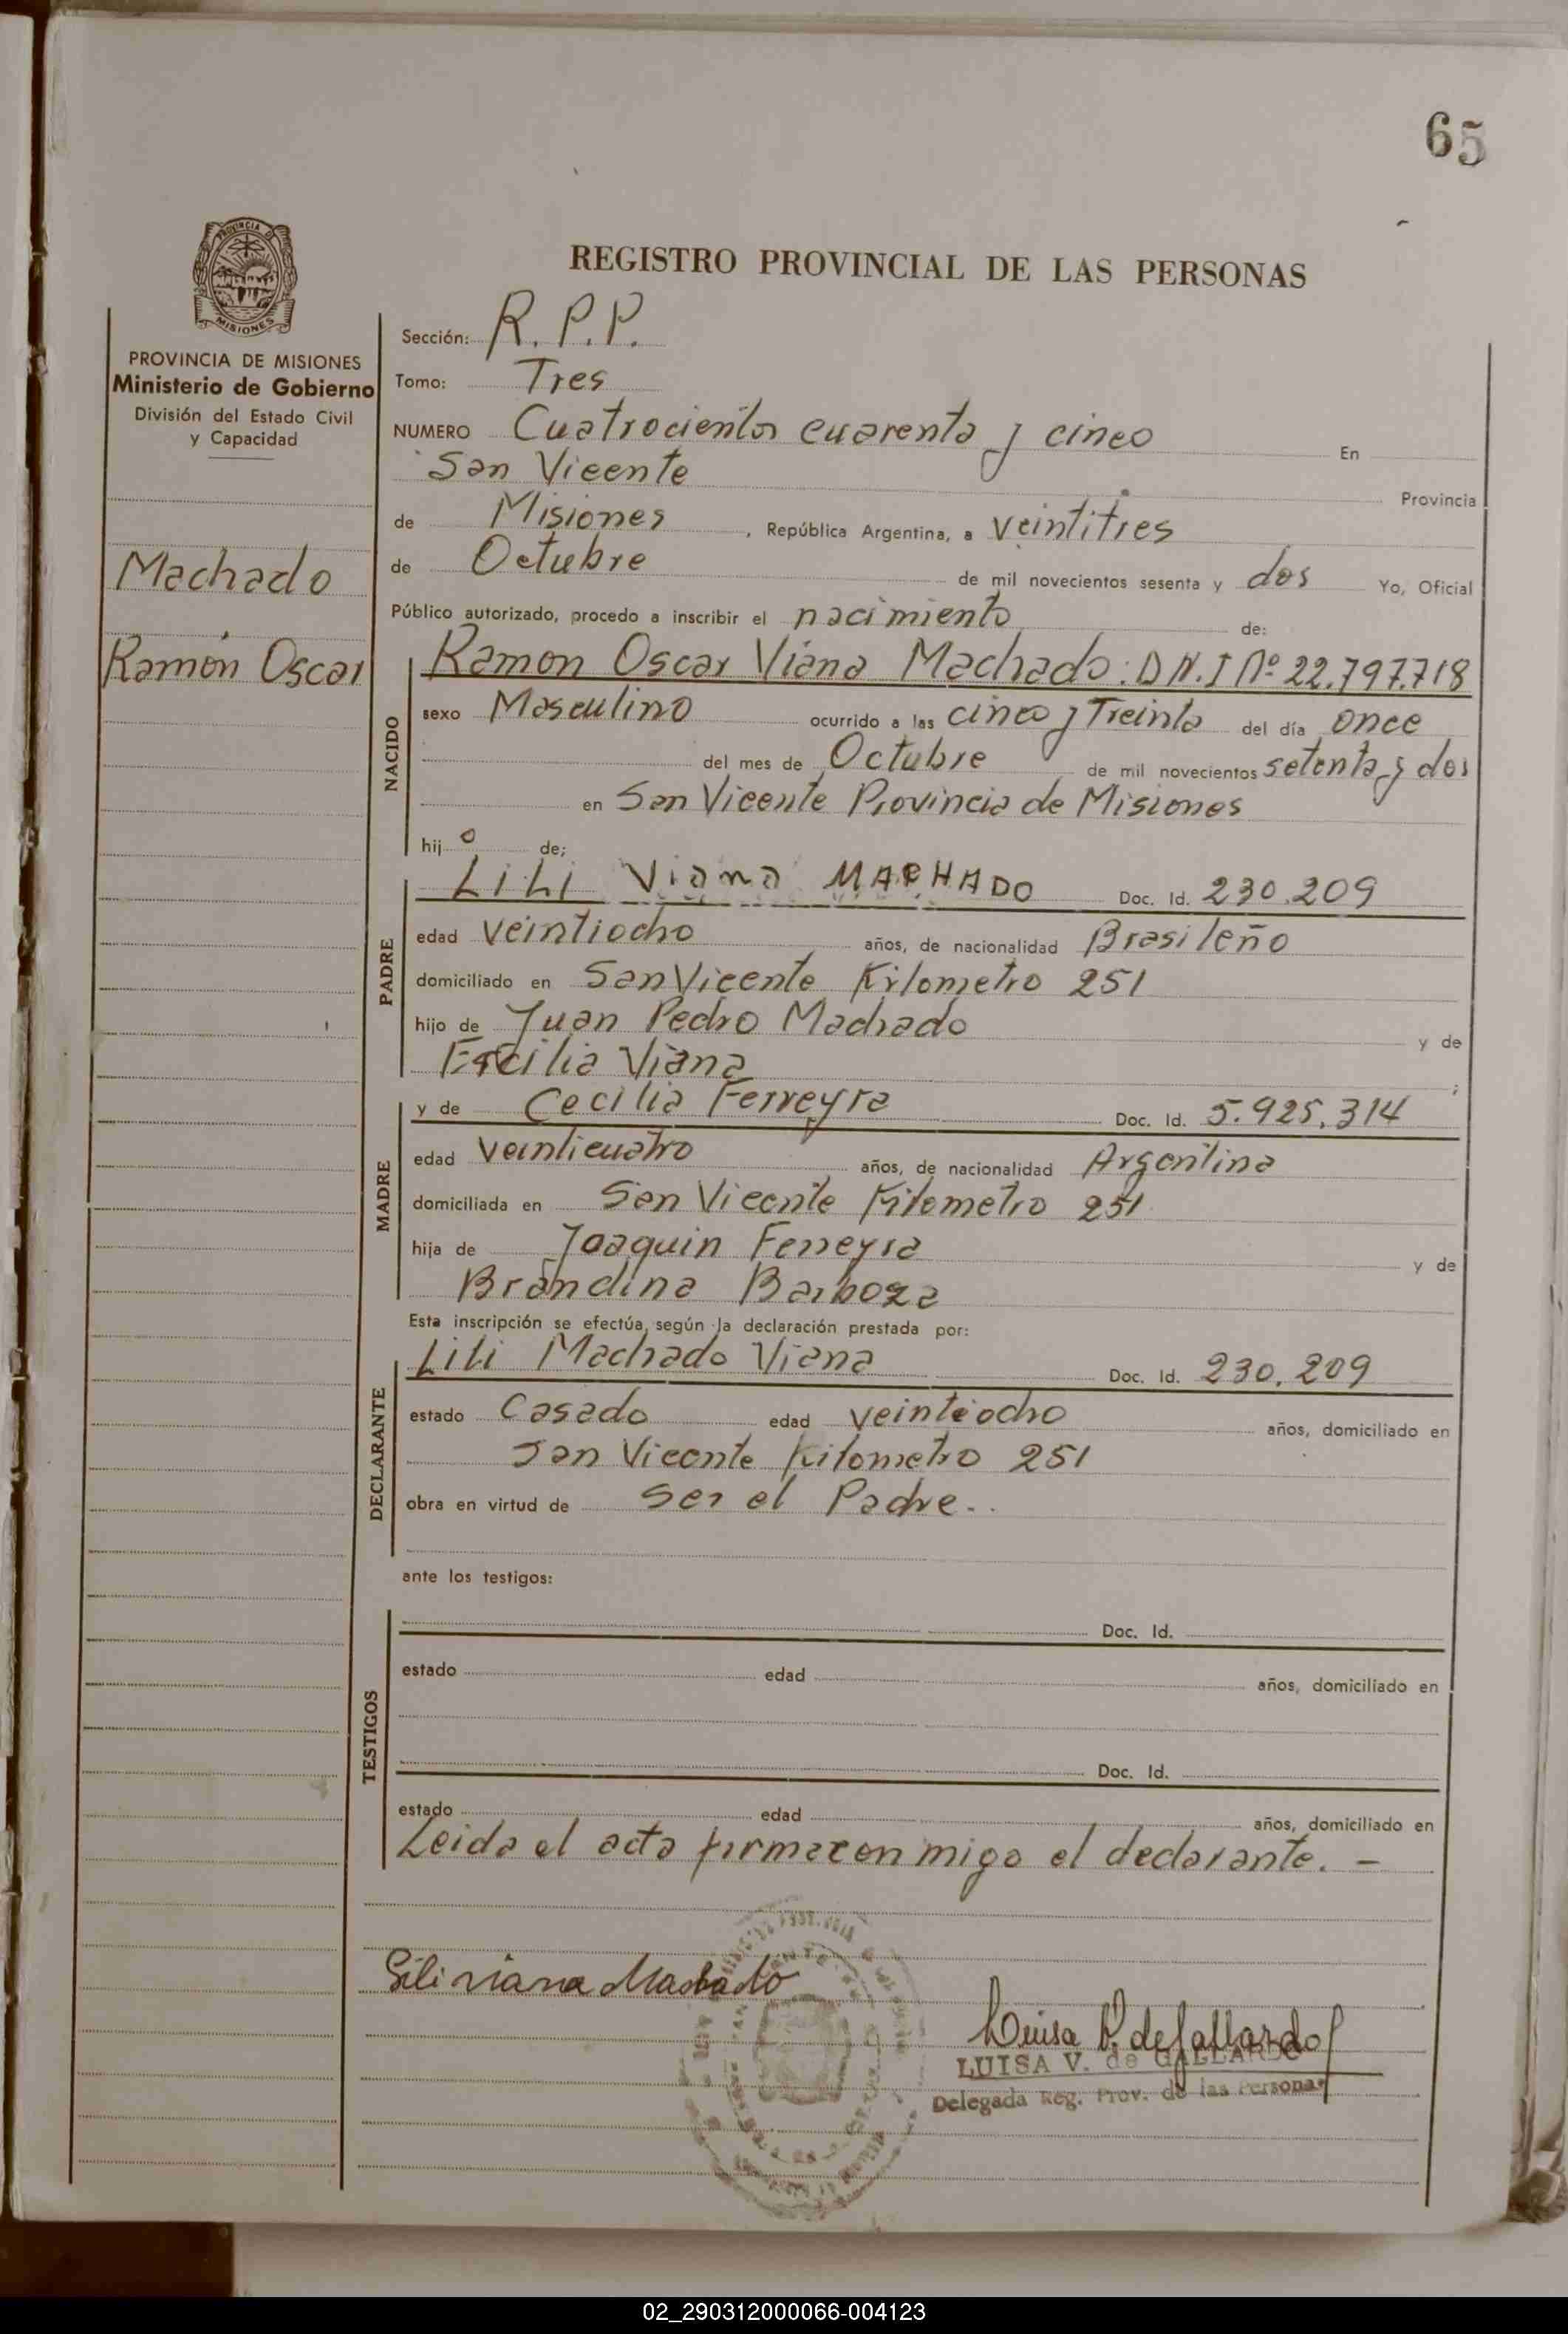 65
PROVINCIA DE
MISIONES
PROVINCIA DE MISIONES
Ministerio de Gobierno
División del Estado Civil
y Capacidad
Machado
Ramón Oscar
REGISTRO PROVINCIAL DE LAS PERSONAS
Sección: R. P. P.
Tomo: Tres
NUMERO Cuatrocientos cuarenta y cinco En
San Vicente Provincia
de Misiones, República Argentina, a veintitres
de Octubre de mil novecientos sesenta y dos Yo, Oficial
Público autorizado, procedo a inscribir el nacimiento de:
NACIDO
Ramon Oscar Viana Machado: D N.I Nº 22.797.718
sexo Masculino ocurrido a las cinco y Treinta del día once
del mes de Octubre de mil novecientos setenta y dos
en San Vicente Provincia de Misiones
hijo de;
PADRE
LiLi Viana MACHADO Doc. Id. 230.209
edad veintiocho años, de nacionalidad Brasileño
domiciliado en San Vicente Kilometro 251
hijo de Juan Pedro Machado y de
Viana;
MADRE
y de Cecilia Ferreyra Doc. Id. 5.925.314
edad veinticuatro años, de nacionalidad Argentina
domiciliada en San Vicente Kilometro 251
hija de Joaquin Ferreyra y de
Brandina Barboza
Esta inscripción se efectúa, según la declaración prestada por:
DECLARANTE
Lili Machado Viana Doc. Id. 230.209
estado Casado edad veintiocho años, domiciliado en
San Vicente Kilometro 251
obra en virtud de ser el Padre..
ante los testigos:
TESTIGOS
Doc. Id.
estado edad años, domiciliado en
Doc. Id.
estado edad años, domiciliado en
Leida el acta firma conmigo el declarante. -
Lili viana Machado
Luisa V. de Gallardo
LUISA V. de GALLARDO
Delegada Reg. Prov. de las Personas
02_290312000066-004123